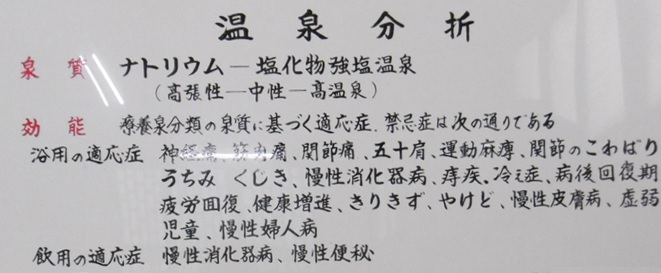 温泉分折
泉質 ナトリウム―塩化物強塩温泉
(高張性―中性―高温泉)
効能 療養泉分類の泉質に基づく適応症、禁忌症は次の通りである
浴用の適応症 神経痛、筋肉痛、関節痛、五十肩、運動麻痺、関節のこわばり
うちみ くじき、慢性消化器病、痔疾、冷え症、病後回復期
疲労回復、健康増進、きりきず、やけど、慢性皮膚病、虚弱
児童、慢性婦人病
飲用の適応症 慢性消化器病、慢性便秘